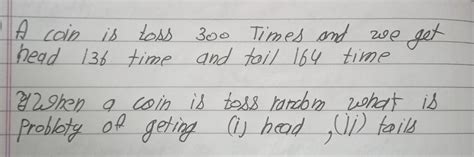 A coin is toss 300 Times and we get
head 136 time and tail 164 time
when a coin is toss random what is
Probloty of geting (i) head , (ii) tails